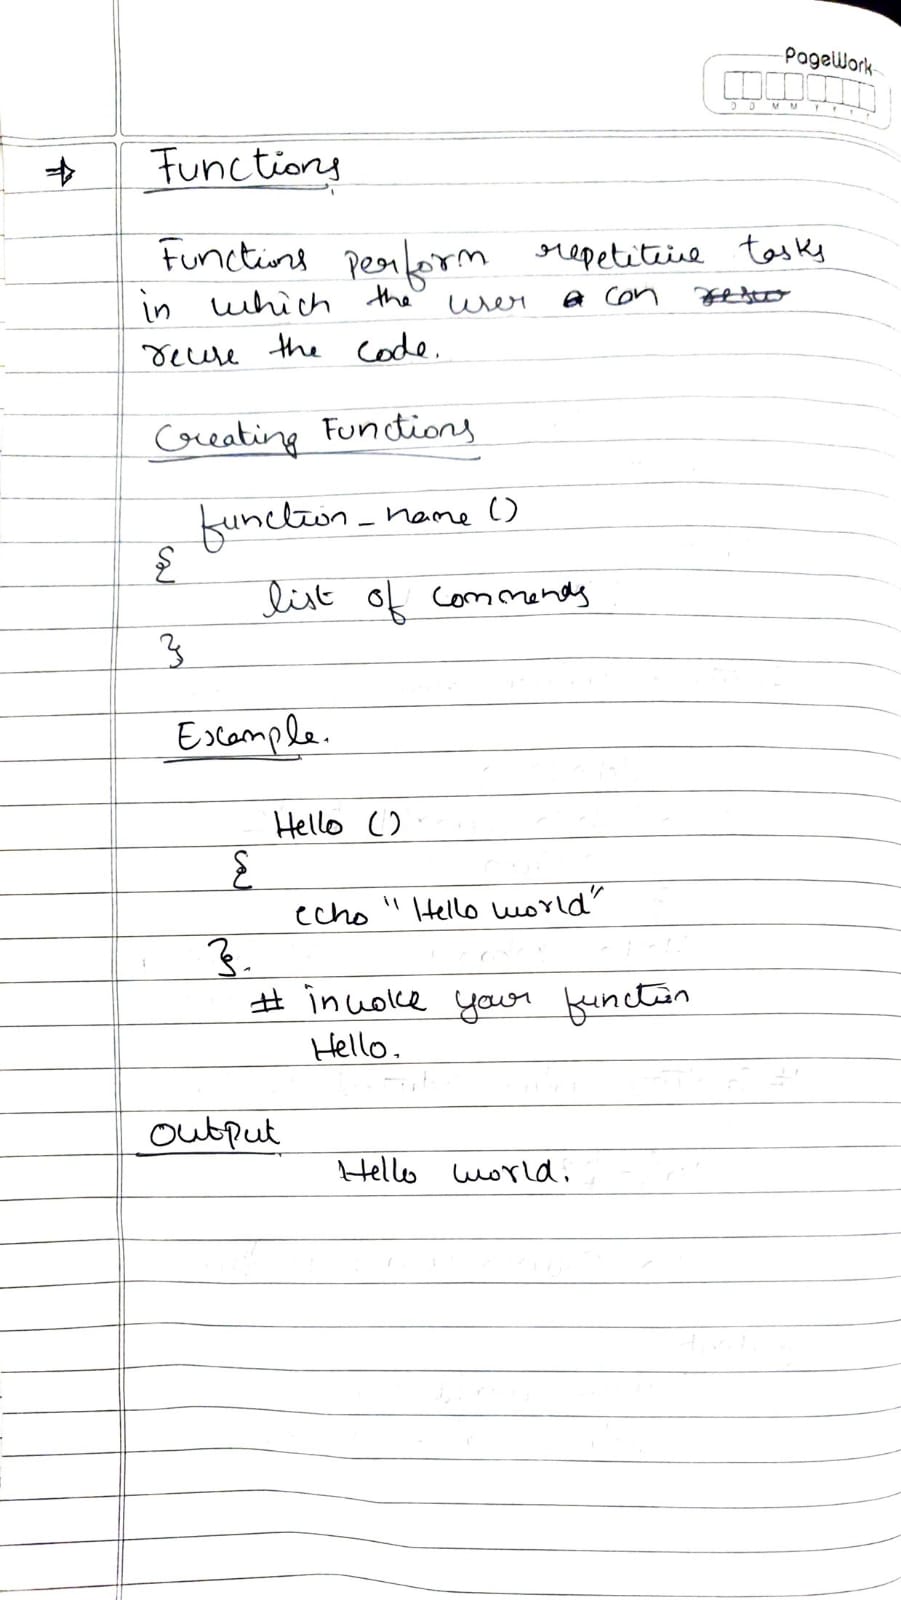 PageWork
D D M M Y Y Y Y
⇒ Functions
Functions perform repetitive tasks
in which the user can
reuse the code.
Creating Functions
function_name ()
{
list of commands
}
Example.
Hello ()
{
echo "Hello world"
}.
# invoke your function
Hello.
Output
Hello world.